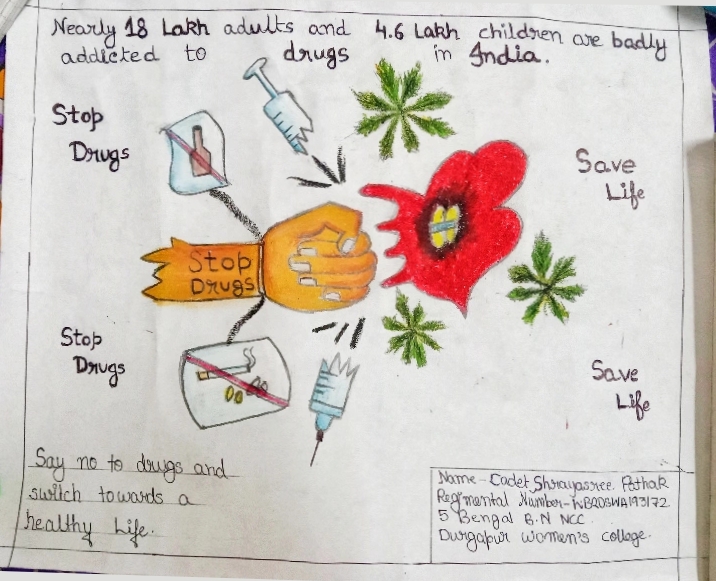 Nearly 18 Lakh adults and 4.6 Lakh children are badly
addicted to drugs in India.
Stop
Drugs
Save
Life
Stop
Drugs
Stop
Drugs
Save
Life
Say no to drugs and
switch towards a
healthy Life.
Name - Cadet Shrayasree Pathak
Regimental Number - WB20SWA193172
5 Bengal B.N NCC
Durgapur Women's college.